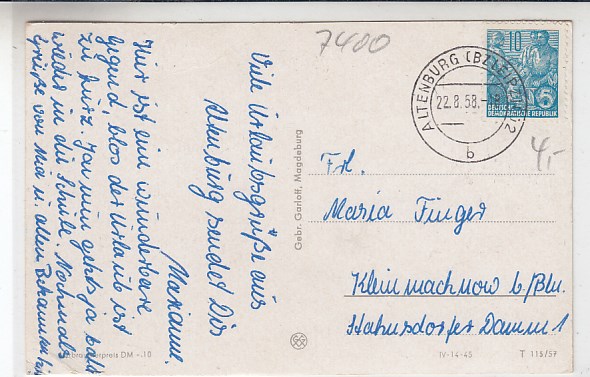 7400
ALTENBURG (BZ LEIPZIG) 2
22.8.58.
b
10
DEUTSCHE
DEMOKRATISCHE REPUBLIK
4,-
Viele Urlaubsgrüße aus
Altenburg sendet Dir
Marianne.
Hier ist eine wunderbare
Gegend, blos der Urlaub ist
zu kurz. Ja nun gehts ja bald
wieder in die Schule. Nochmals
Grüße von Mia u. allen Bekannten
Gebr. Garloff, Magdeburg
Frl.
Maria Finger
Kleinmachnow b/Bln.
Stahnsdorfer Damm 1
Verbraucherpreis DM -.10
IV-14-45
T 115/57